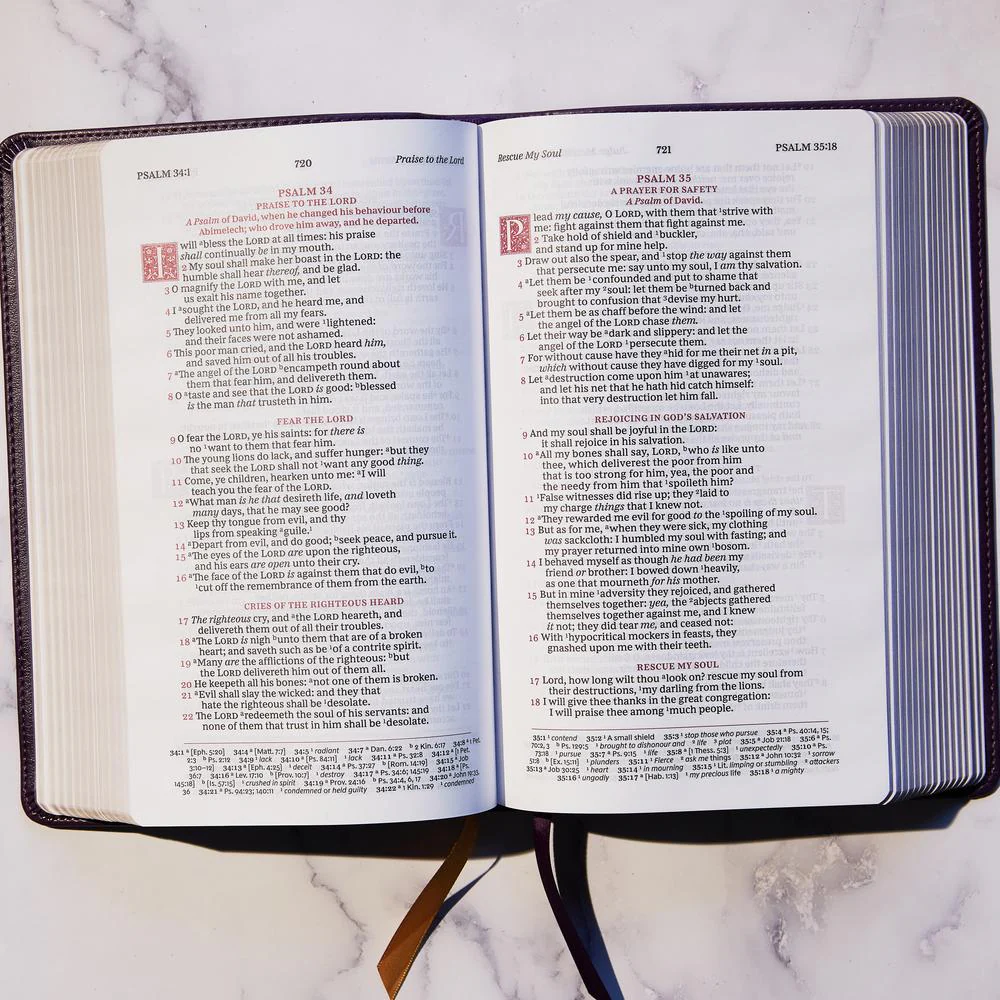 PSALM 34:1
720
Praise to the Lord
PSALM 34
PRAISE TO THE LORD
A Psalm of David, when he changed his behaviour before
Abimelech; who drove him away, and he departed.
I will ᵃbless the LORD at all times: his praise
shall continually be in my mouth.
2 My soul shall make her boast in the LORD: the
humble shall hear thereof, and be glad.
3 O magnify the LORD with me, and let
us exalt his name together.
4 I ᵃsought the LORD, and he heard me, and
delivered me from all my fears.
5 They looked unto him, and were ¹lightened:
and their faces were not ashamed.
6 This poor man cried, and the LORD heard him,
and saved him out of all his troubles.
7 ᵃThe angel of the LORD ᵇencampeth round about
them that fear him, and delivereth them.
8 O ᵃtaste and see that the LORD is good: ᵇblessed
is the man that trusteth in him.
FEAR THE LORD
9 O fear the LORD, ye his saints: for there is
no ¹want to them that fear him.
10 The young lions do lack, and suffer hunger: ᵃbut they
that seek the LORD shall not ¹want any good thing.
11 Come, ye children, hearken unto me: ᵃI will
teach you the fear of the LORD.
12 ᵃWhat man is he that desireth life, and loveth
many days, that he may see good?
13 Keep thy tongue from evil, and thy
lips from speaking ᵃguile.¹
14 ᵃDepart from evil, and do good; ᵇseek peace, and pursue it.
15 ᵃThe eyes of the LORD are upon the righteous,
and his ears are open unto their cry.
16 ᵃThe face of the LORD is against them that do evil, ᵇto
¹cut off the remembrance of them from the earth.
CRIES OF THE RIGHTEOUS HEARD
17 The righteous cry, and ᵃthe LORD heareth, and
delivereth them out of all their troubles.
18 ᵃThe LORD is nigh ᵇunto them that are of a broken
heart; and saveth such as be ¹of a contrite spirit.
19 ᵃMany are the afflictions of the righteous: ᵇbut
the LORD delivereth him out of them all.
20 He keepeth all his bones: ᵃnot one of them is broken.
21 ᵃEvil shall slay the wicked: and they that
hate the righteous shall be ¹desolate.
22 The LORD ᵃredeemeth the soul of his servants: and
none of them that trust in him shall be ¹desolate.
34:1 ᵃ [Eph. 5:20] 34:4 ᵃ [Matt. 7:7] 34:5 ¹ radiant 34:7 ᵃ Dan. 6:22 ᵇ 2 Kin. 6:17 34:8 ᵃ 1 Pet.
2:3 ᵇ Ps. 2:12 34:9 ¹ lack 34:10 ᵃ [Ps. 84:11] ¹ lack 34:11 ᵃ Ps. 32:8 34:12 ᵃ [1 Pet.
3:10–12] 34:13 ᵃ [Eph. 4:25] ¹ deceit 34:14 ᵃ Ps. 37:27 ᵇ [Rom. 14:19] 34:15 ᵃ Job
36:7 34:16 ᵃ Lev. 17:10 ᵇ [Prov. 10:7] ¹ destroy 34:17 ᵃ Ps. 34:6; 145:19 34:18 ᵃ Ps.
145:18 ᵇ [Is. 57:15] ¹ crushed in spirit 34:19 ᵃ Prov. 24:16 ᵇ Ps. 34:4, 6, 17 34:20 ᵃ John 19:33,
36 34:21 ᵃ Ps. 94:23; 140:11 ¹ condemned or held guilty 34:22 ᵃ 1 Kin. 1:29 ¹ condemned
Rescue My Soul
721
PSALM 35:18
PSALM 35
A PRAYER FOR SAFETY
A Psalm of David.
Plead my cause, O LORD, with them that ¹strive with
me: fight against them that fight against me.
2 Take hold of shield and ¹buckler,
and stand up for mine help.
3 Draw out also the spear, and ¹stop the way against them
that persecute me: say unto my soul, I am thy salvation.
4 ᵃLet them be ¹confounded and put to shame that
seek after my ²soul: let them be ᵇturned back and
brought to confusion that ³devise my hurt.
5 ᵃLet them be as chaff before the wind: and let
the angel of the LORD chase them.
6 Let their way be ᵃdark and slippery: and let the
angel of the LORD ¹persecute them.
7 For without cause have they ᵃhid for me their net in a pit,
which without cause they have digged for my ¹soul.
8 Let ᵃdestruction come upon him ¹at unawares;
and let his net that he hath hid catch himself:
into that very destruction let him fall.
REJOICING IN GOD'S SALVATION
9 And my soul shall be joyful in the LORD:
it shall rejoice in his salvation.
10 ᵃAll my bones shall say, LORD, ᵇwho is like unto
thee, which deliverest the poor from him
that is too strong for him, yea, the poor and
the needy from him that ¹spoileth him?
11 ¹False witnesses did rise up; they ²laid to
my charge things that I knew not.
12 ᵃThey rewarded me evil for good to the ¹spoiling of my soul.
13 But as for me, ᵃwhen they were sick, my clothing
was sackcloth: I humbled my soul with fasting; and
my prayer returned into mine own ¹bosom.
14 I behaved myself as though he had been my
friend or brother: I bowed down ¹heavily,
as one that mourneth for his mother.
15 But in mine ¹adversity they rejoiced, and gathered
themselves together: yea, the ²abjects gathered
themselves together against me, and I knew
it not; they did tear me, and ceased not:
16 With ¹hypocritical mockers in feasts, they
gnashed upon me with their teeth.
RESCUE MY SOUL
17 Lord, how long wilt thou ᵃlook on? rescue my soul from
their destructions, ¹my darling from the lions.
18 I will give thee thanks in the great congregation:
I will praise thee among ¹much people.
35:1 ¹ contend 35:2 ¹ A small shield 35:3 ¹ stop those who pursue 35:4 ᵃ Ps. 40:14, 15;
70:2, 3 ᵇ Ps. 129:5 ¹ brought to dishonour and ² life ³ plot 35:5 ᵃ Job 21:18 35:6 ᵃ Ps.
73:18 ¹ pursue 35:7 ᵃ Ps. 9:15 ¹ life 35:8 ᵃ [1 Thess. 5:3] ¹ unexpectedly 35:10 ᵃ Ps.
51:8 ᵇ [Ex. 15:11] ¹ plunders 35:11 ¹ Fierce ² ask me things 35:12 ᵃ John 10:32 ¹ sorrow
35:13 ᵃ Job 30:25 ¹ heart 35:14 ¹ in mourning 35:15 ¹ Lit. limping or stumbling ² attackers
35:16 ¹ ungodly 35:17 ᵃ [Hab. 1:13] ¹ my precious life 35:18 ¹ a mighty